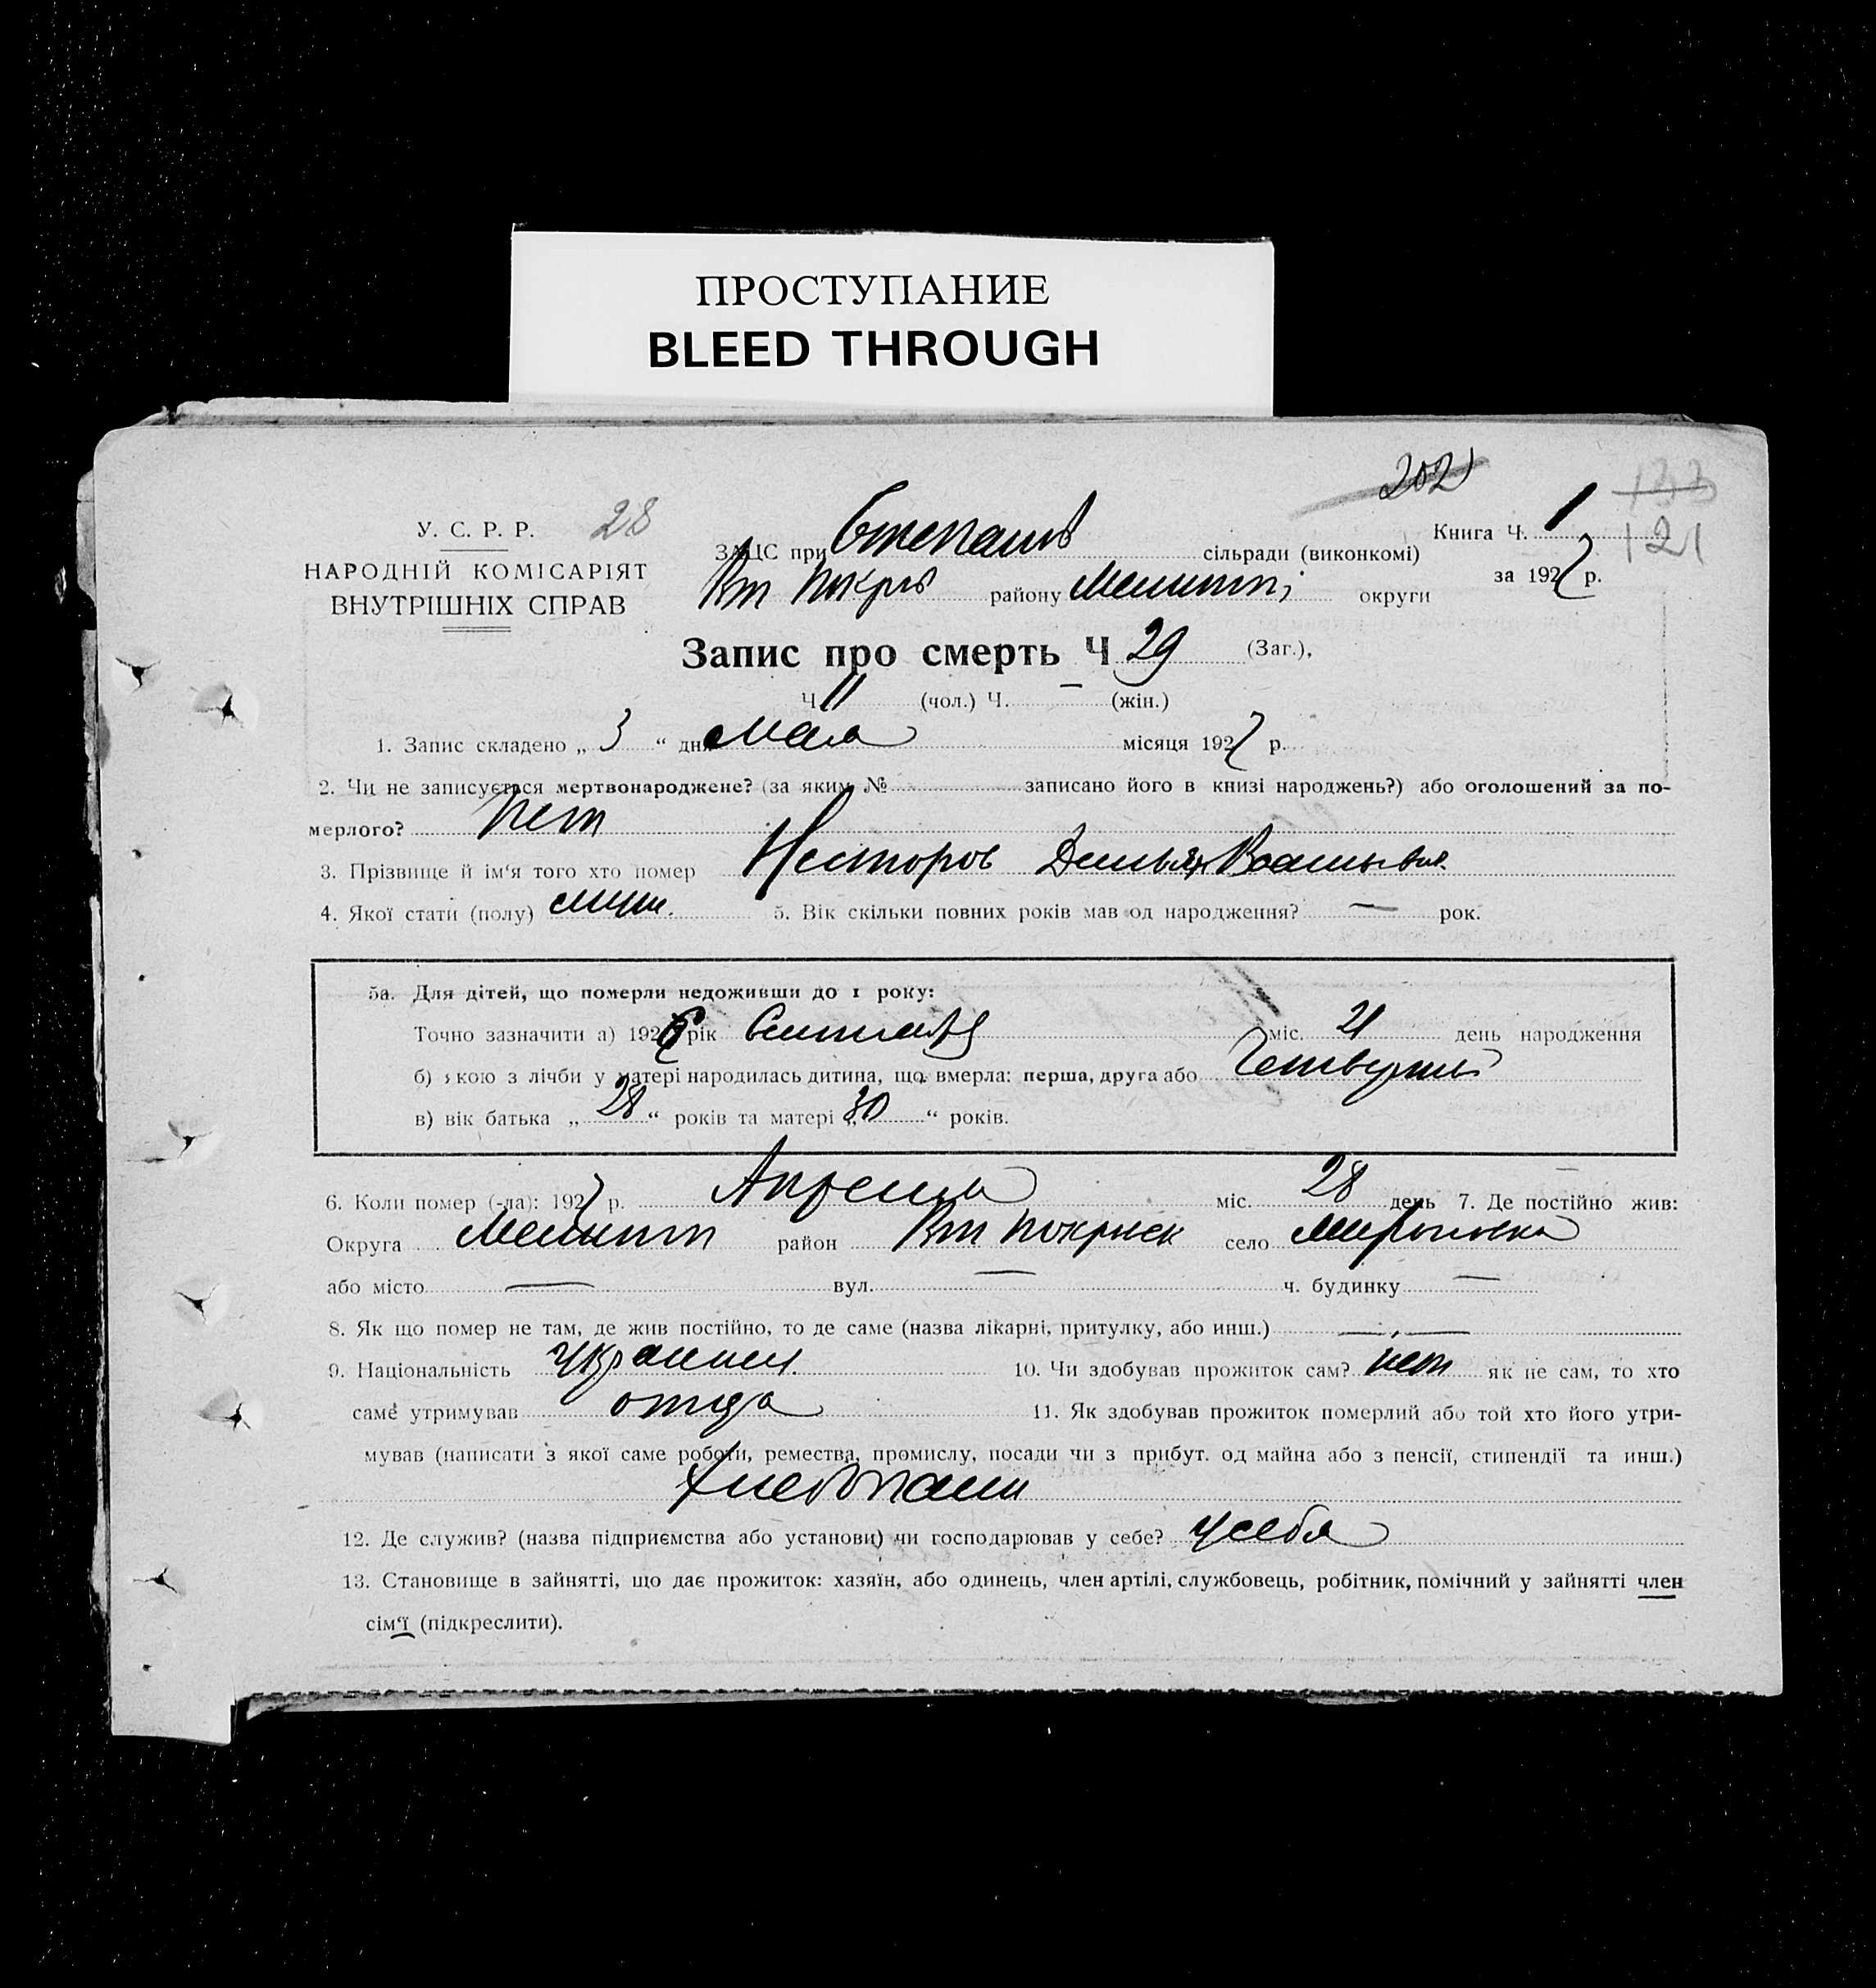 ПРОСТУПАНИЕ
BLEED THROUGH
202
133
У. С. Р. Р. 28
ЗАЦС при Степанів сільради (виконкомі) Книга Ч. 1 121
НАРОДНІЙ КОМІСАРІЯТ
ВНУТРІШНІХ СПРАВ
району округи за 1927 р.
Запис про смерть Ч 29 (Заг.),
Ч 11 (чол.) Ч. — (жін.)
1. Запис складено „ 3 “ дня Мая місяця 1927 р.
2. Чи не записується мертвонароджене? (за яким № записано його в книзі народжень?) або оголошений за по-
мерлого? Нет
3. Прізвище й ім‘я того хто помер Несторов Демьян
4. Якої стати (полу) муж. 5. Вік скільки повних років мав од народження? — рок.
5а. Для дітей, що померли недоживши до 1 року:
Точно зазначити а) 1926 рік міс. 21 день народження
б) якою з лічби у матері народилась дитина, що вмерла: перша, друга або
в) вік батька „ 28 “ років та матері „ 30 “ років.
6. Коли помер (-ла): 1927 р. Апреля міс. 28 день 7. Де постійно жив:
Округа Мелитоп район село
або місто — вул. — ч. будинку —
8. Як що помер не там, де жив постійно, то де саме (назва лікарні, притулку, або инш.) —
9. Національність 10. Чи здобував прожиток сам? нет як не сам, то хто
саме утримував отца 11. Як здобував прожиток померлий або той хто його утри-
мував (написати з якої саме роботи, ремества, промислу, посади чи з прибут. од майна або з пенсії, стипендії та инш.)
Хлебопаш
12. Де служив? (назва підприємства або установи) чи господарював у себе? у себя
13. Становище в зайнятті, що дає прожиток: хазяїн, або одинець, член артілі, службовець, робітник, помічний у зайнятті член
сім‘ї (підкреслити).